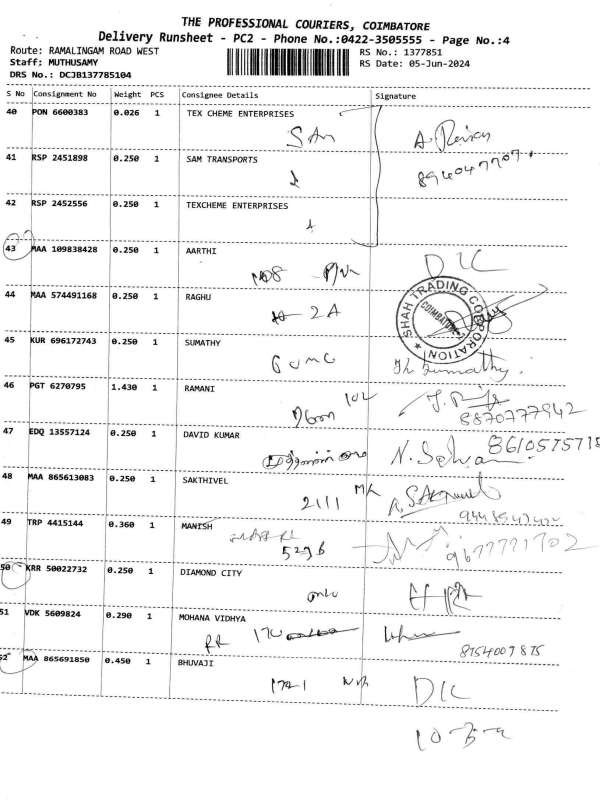 THE PROFESSIONAL COURIERS, COIMBATORE
Delivery Runsheet - PC2 - Phone No.:0422-3505555 - Page No.:4
Route: RAMALINGAM ROAD WEST RS No.: 1377851
Staff: MUTHUSAMY RS Date: 05-Jun-2024
DRS No.: DCJB137785104
S No Consignment No Weight PCS Consignee Details Signature
40 PON 6600383 0.026 1 TEX CHEME ENTERPRISES
SAM
41 RSP 2451898 0.250 1 SAM TRANSPORTS
42 RSP 2452556 0.250 1 TEXCHEME ENTERPRISES
43 MAA 109838428 0.250 1 AARTHI
DIL
44 MAA 574491168 0.250 1 RAGHU
2A
SHAH TRADING CORPORATION
COIMBATORE
45 KUR 696172743 0.250 1 SUMATHY
46 PGT 6270795 1.430 1 RAMANI
102
8870777942
47 EDQ 13557124 0.250 1 DAVID KUMAR
N. Selvan
8610575715
48 MAA 865613083 0.250 1 SAKTHIVEL
2111 MK
49 TRP 4415144 0.360 1 MANISH
5296
9677771702
50 KRR 50022732 0.250 1 DIAMOND CITY
51 VDK 5609824 0.290 1 MOHANA VIDHYA
RR 170
8754007875
52 MAA 865691850 0.450 1 BHUVAJI
1721 DIL